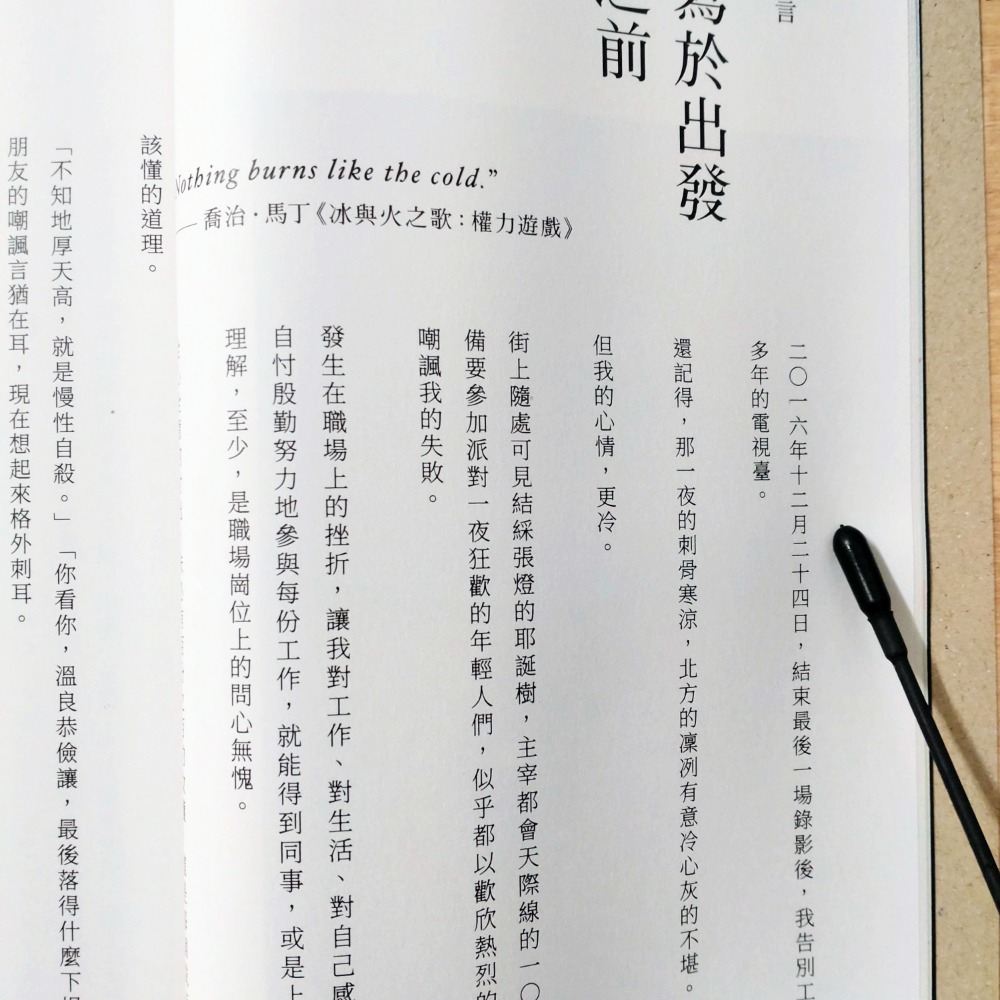 言
為於出發
之前
Nothing burns like the cold.”
——喬治·馬丁《冰與火之歌:權力遊戲》
二〇一六年十二月二十四日,結束最後一場錄影後,我告別工
多年的電視臺。
還記得,那一夜的刺骨寒涼,北方的凜冽有意冷心灰的不堪。
但我的心情,更冷。
街上隨處可見結綵張燈的耶誕樹,主宰都會天際線的一〇
備要參加派對一夜狂歡的年輕人們,似乎都以歡欣熱烈的
嘲諷我的失敗。
發生在職場上的挫折,讓我對工作、對生活、對自己感
自忖殷勤努力地參與每份工作,就能得到同事,或是上
理解,至少,是職場崗位上的問心無愧。
該懂的道理。
「不知地厚天高,就是慢性自殺。」「你看你,溫良恭儉讓,最後落得什麼下場
朋友的嘲諷言猶在耳,現在想起來格外刺耳。